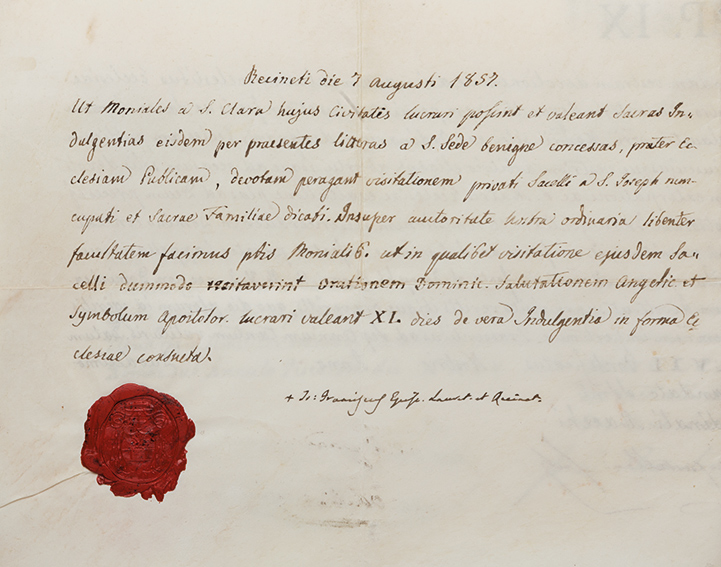 Recineti die 7 Augusti 1857.
Ut Moniales a S. Clara hujus Civitatis lucrari possint et valeant Sacras In=
dulgentias eisdem per praesentes litteras a S. Sede benigne concessas, praeter Ec=
clesiam Publicam, devotam peragant visitationem privati Sacelli a S. Joseph nun=
cupati et Sacrae Familiae dicati. Insuper auctoritate nostra ordinaria libenter
facultatem facimus ptis Monialib. ut in qualibet visitatione ejusdem Sa=
celli dummodo recitaverint Orationem Dominic. Salutationem Angelic. et
Symbolum Apostolor. lucrari valeant XL. dies de vera Indulgentia in forma Ec=
clesiae consueta.
+ Jo: Franciscus Episc. Lauret. et Recinet.